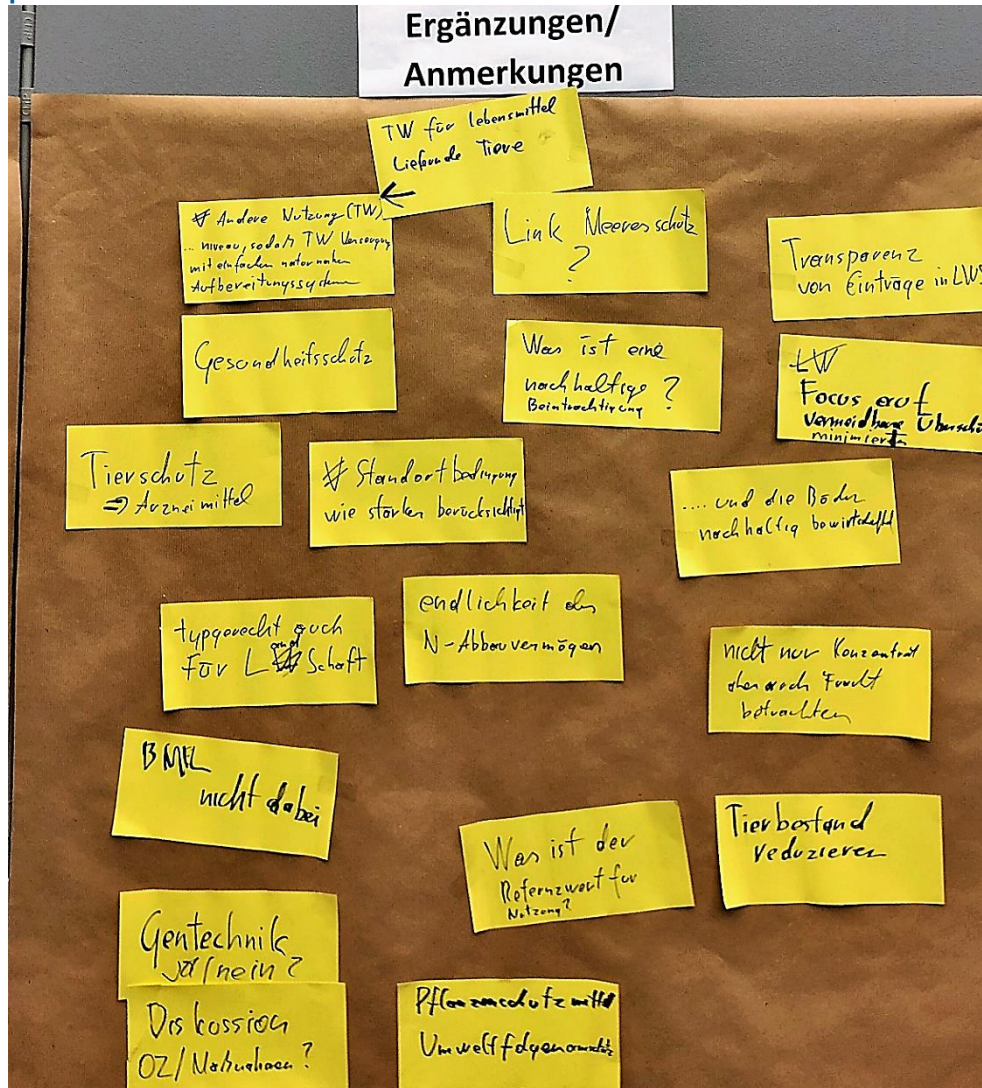 Ergänzungen/
Anmerkungen
TW für lebensmittel
Liefernde Tiere
Andere Nutzung (TW)
... niveau, sodaß TW Versorgung
mit einfachen naturnahen
Aufbereitungssystem
Link Meeresschutz
?
Transparenz
von Einträge in LWS
Gesundheitsschutz
Was ist eine
nachhaltige ?
Beinträchtigung
LW
Focus auf
vermeidbare Übersch
minimieren
Tierschutz
⇒ Arzneimittel
# Standortbedingung
wie stärker berücksichtigt
.... und die Böden
nachhaltig bewirtschaftet
typgerecht auch
für L Schaft
endlichkeit des
N-Abbauvermögen
nicht nur Konzentrat
aber auch Fracht
betrachten
BMEL
nicht dabei
Was ist der
Refernzwert für
Nutzung?
Tierbestand
reduzieren
Gentechnik
ja/nein?
Diskussion
OZ/Maßnahmen?
Pflanzenschutzmittel
Umweltfolgen